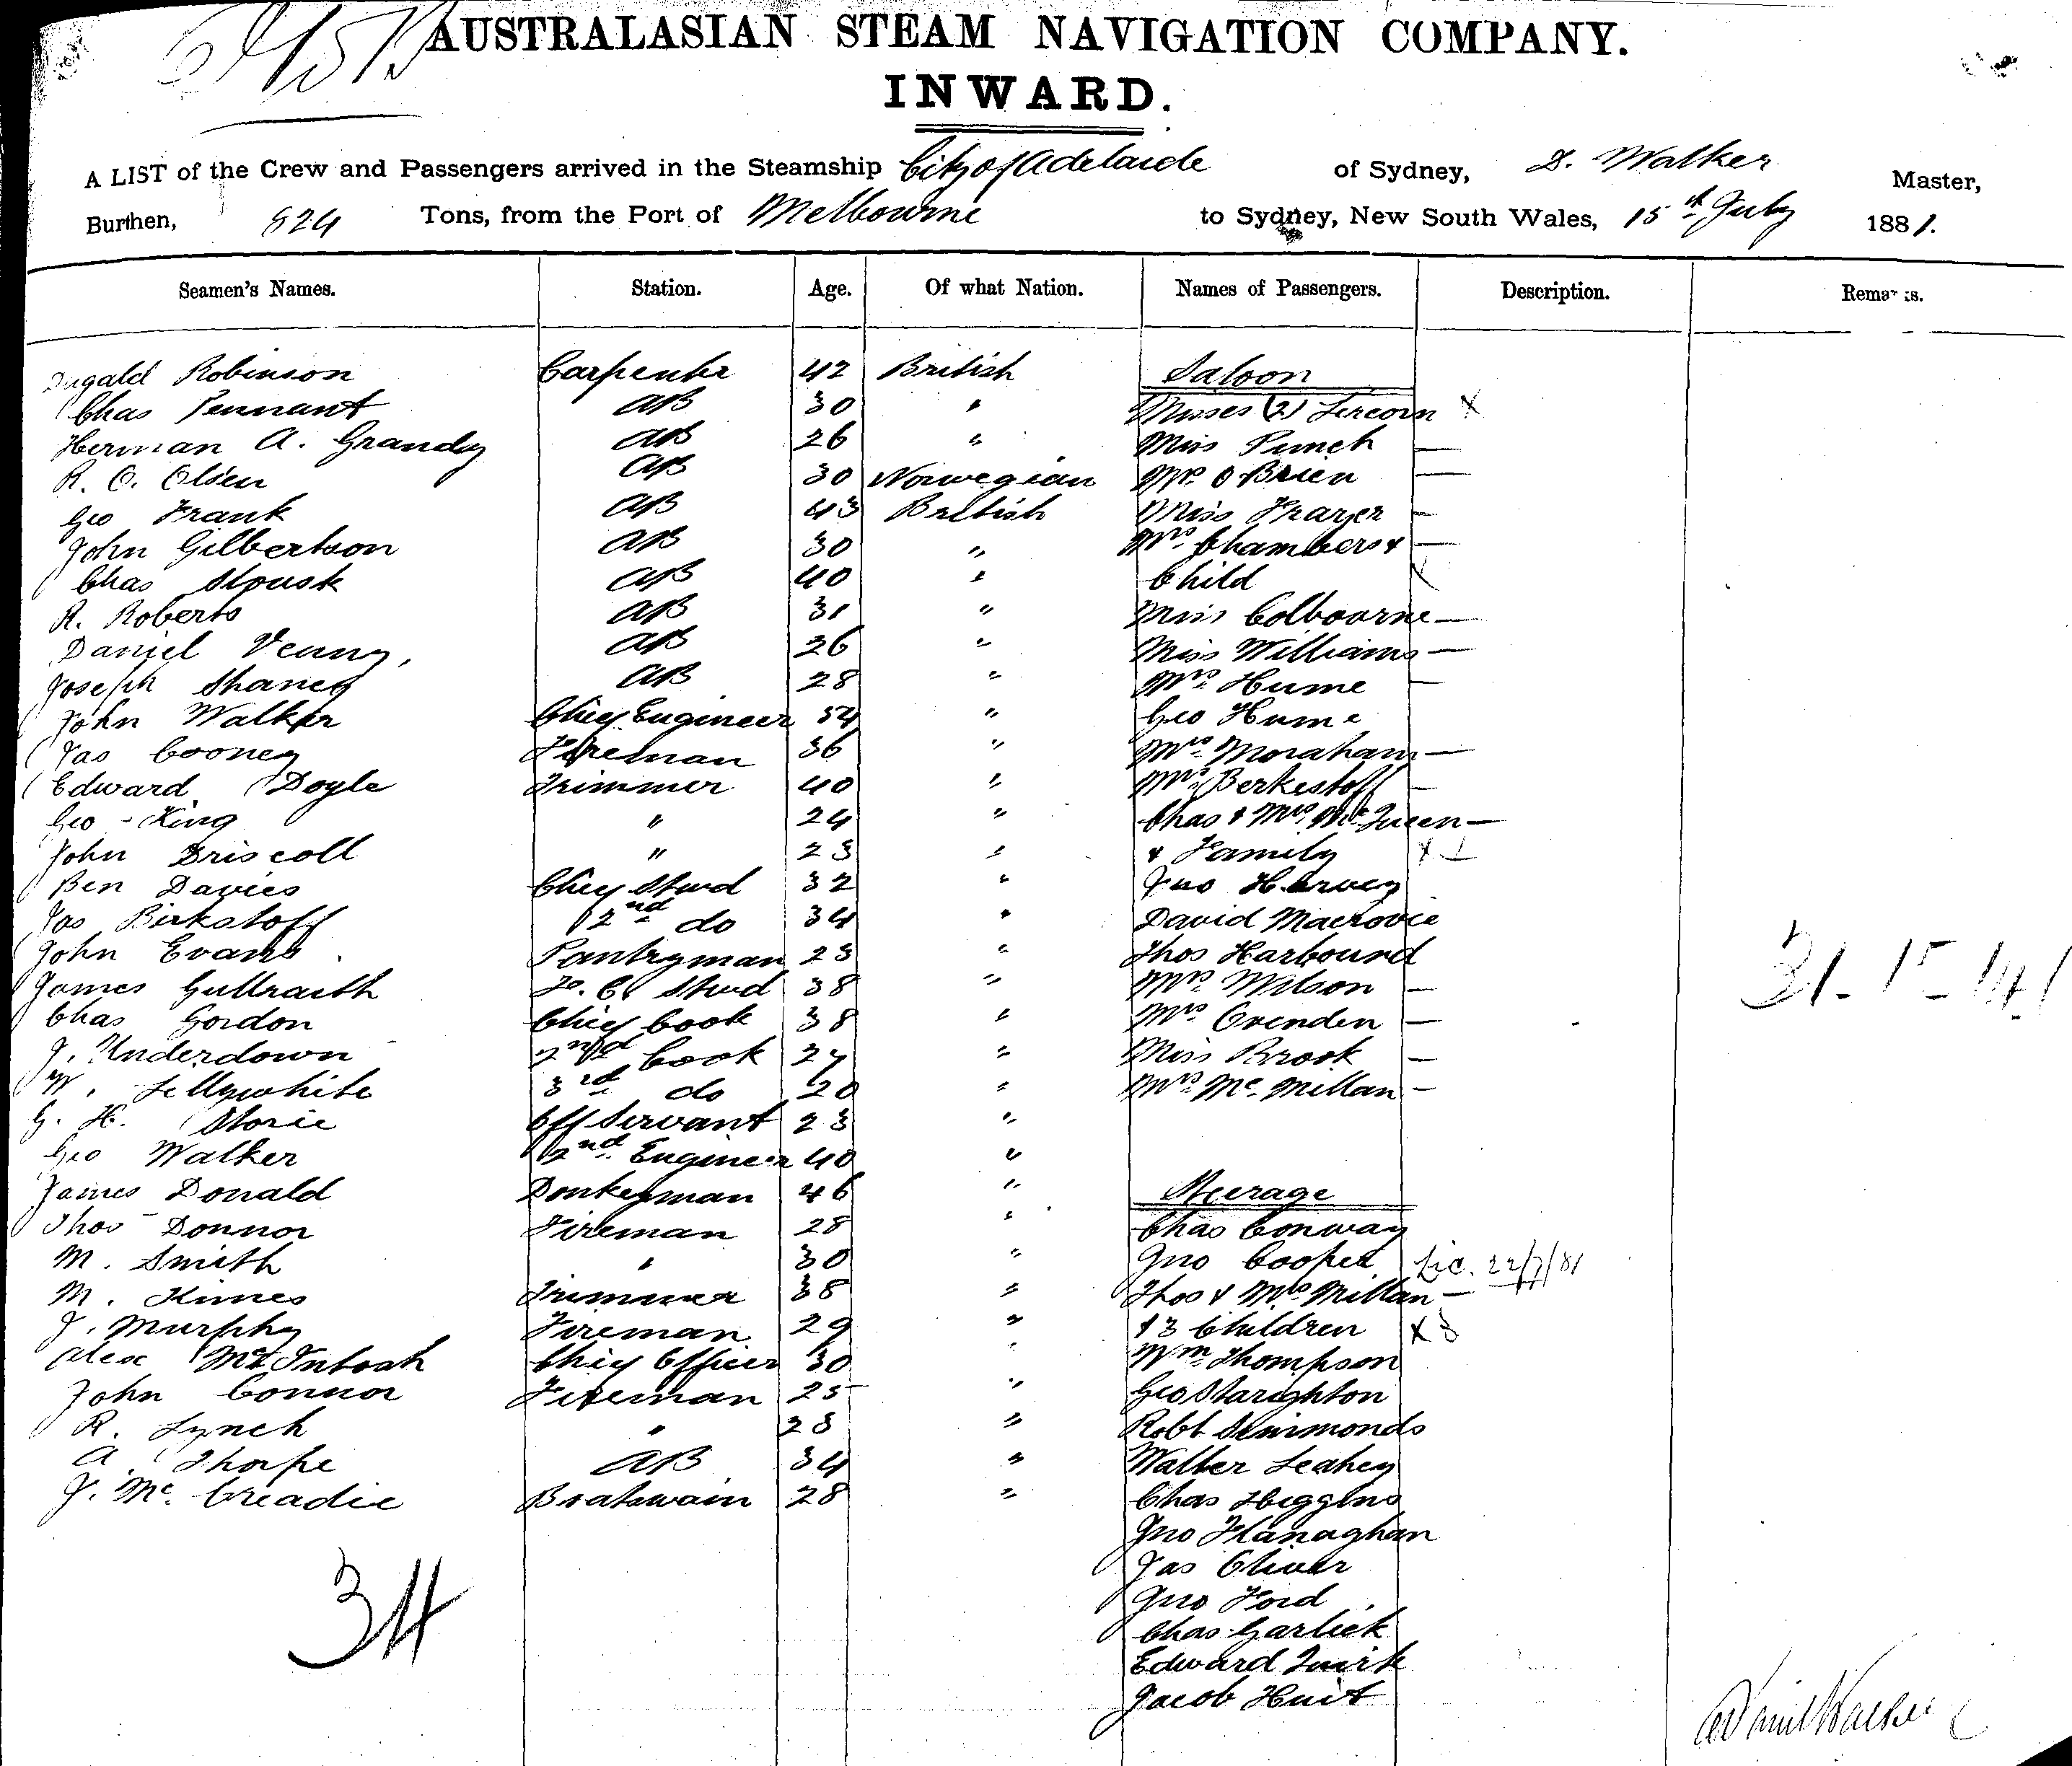 6458
AUSTRALASIAN STEAM NAVIGATION COMPANY.
INWARD.
A LIST of the Crew and Passengers arrived in the Steamship City of Adelaide of Sydney, D. Walker Master,
Burthen, 824 Tons, from the Port of Melbourne to Sydney, New South Wales, 15th July 1881.
Seamen's Names. Station. Age. Of what Nation. Names of Passengers. Description. Remarks.
Dugald Robinson Carpenter 42 British Saloon
Chas Pennant AB 30 " Misses (2) X
Herman A. Grandy AB 26 " Miss Punch —
R. O. Olsen AB 30 Norwegian Mr O Brien —
Geo Frank AB 43 British Miss Frazer —
John Gilbertson AB 30 " Mrs Chambers & —
Chas AB 40 " Child X
R. Roberts AB 31 " Miss Colbourne —
Daniel Venny, AB 26 " Miss Williams —
Joseph Shaney AB 28 " Mrs Hume —
John Walker Chief Engineer 54 " Geo Hume
Jas Cooney Fireman 36 " Mrs Moraham —
Edward Doyle Trimmer 40 " Mrs Berkestoff —
Geo King " 24 " Chas & Mrs McQueen —
John Driscoll " 23 " & Family X 1
Ben Davies Chief Stwd 32 " Jno Harvey
Jas Birkstoff 2nd do 34 " David Macrovie
John Evans Pantryman 23 " Thos Harbound
James Gullraith F. C. Stwd 38 " Mrs Wilson —
Chas Gordon Chief Cook 38 " Mrs Ovenden —
J. Underdown 2nd Cook 27 " Miss Brook —
W. Lellywhite 3rd do 20 " Mrs Mc Millan —
G. H. Storie Off Servant 23 "
Geo Walker 2nd Engineer 40 "
James Donald Donkeyman 46 " Steerage
Thos Donnor Fireman 28 " Chas Conway
M. Smith " 30 " Jno Cooper Lic. 22/7/81
M. Kimes Trimmer 38 " Thos & Mrs Millan —
J. Murphy Fireman 29 " & 3 Children X 3
Alex McIntosh Chief Officer 30 " Wm Thompson
John Connor Fireman 25 " Geo Staughton
R. Lynch " 28 " Robt Simmonds
A. Thorpe AB 34 " Walter Leahey
J. Mc. Creadie Boatswain 28 " Chas Higgins
Jno Flanaghan
Jas Oliver
Jno Ford
Chas Garlick
Edward Quirk
Jacob Huit
34
Daniel Walker